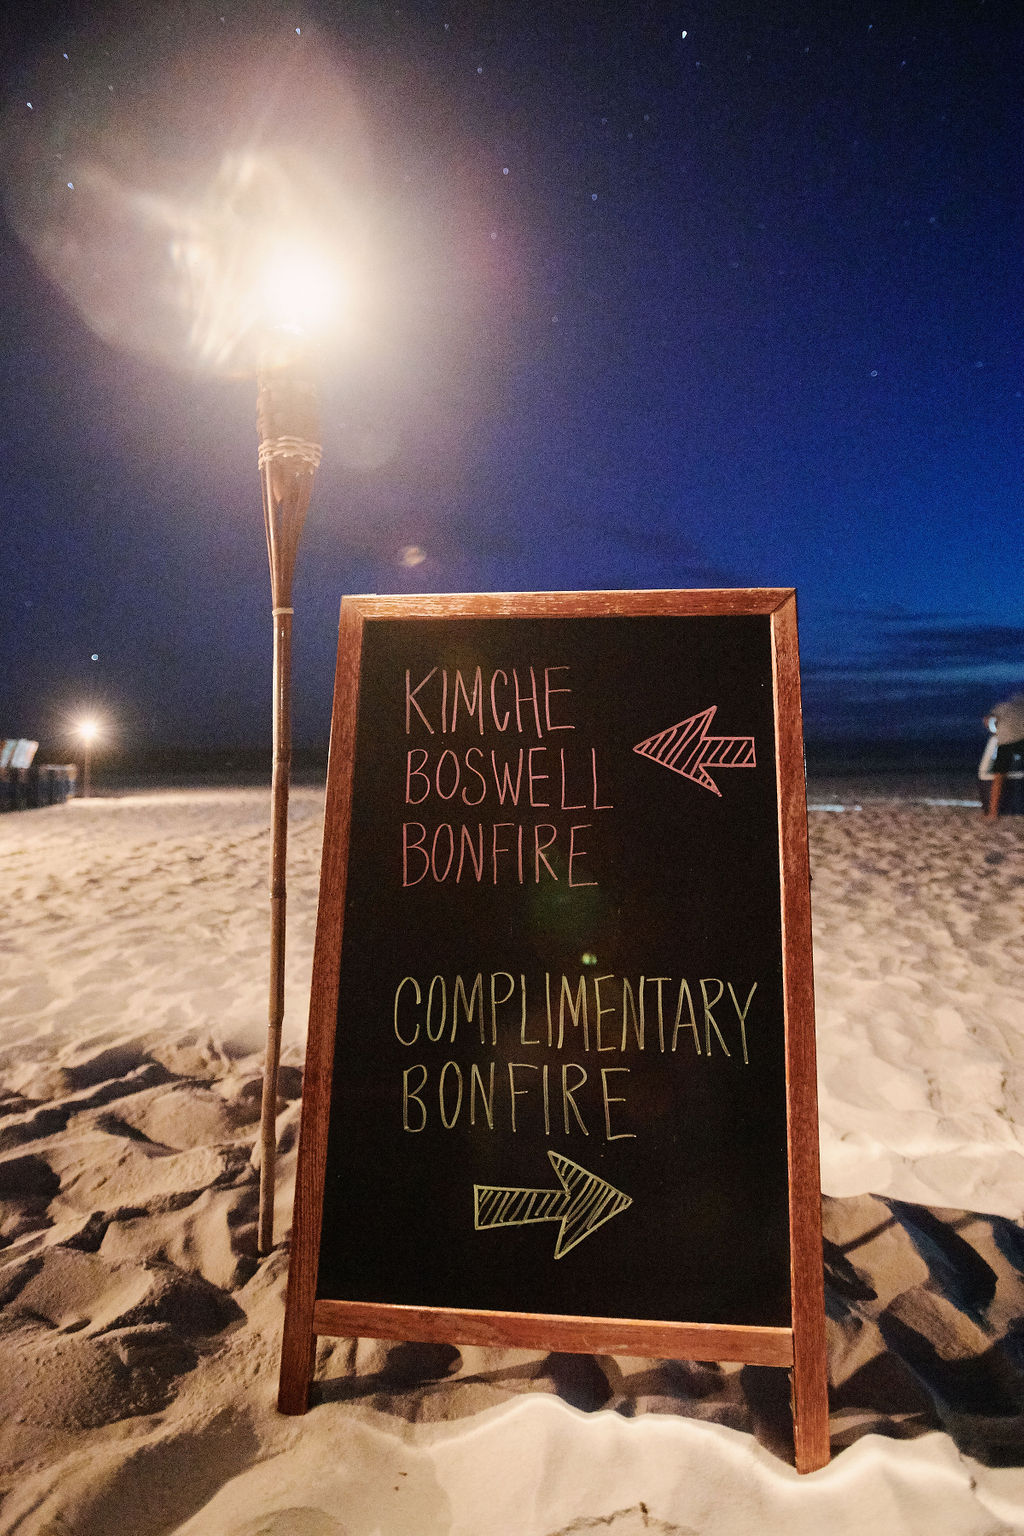 KIMCHE
BOSWELL
BONFIRE
COMPLIMENTARY
BONFIRE